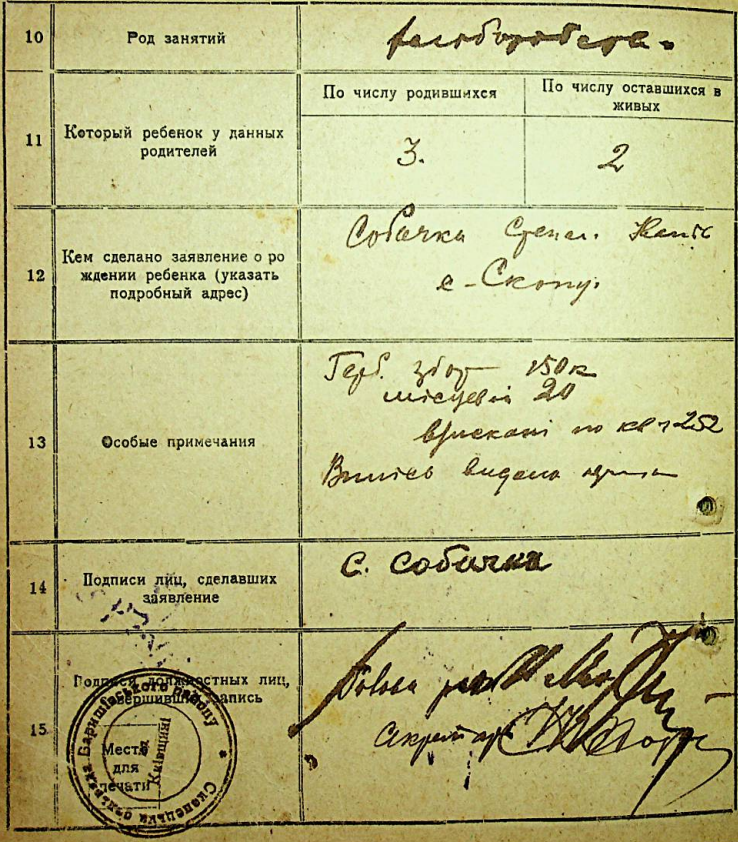 10 Род занятий хлеборобств.
По числу родившихся
По числу оставшихся в
живых
11 Который ребенок у данных
родителей
3. 2
12 Кем сделано заявление о ро
ждении ребенка (указать
подробный адрес)
Собачка Степан.
с-Скопц.
13 Особые примечания
Герб. збор 150 к
місцевий 20
по кв 252
Випись видана
14 Подписи лиц, сделавших
заявление
С. Собачка
15 Подписи должностных лиц,
совершивших запись
Голова
Секретар
Место
для
печати
Баришівського району